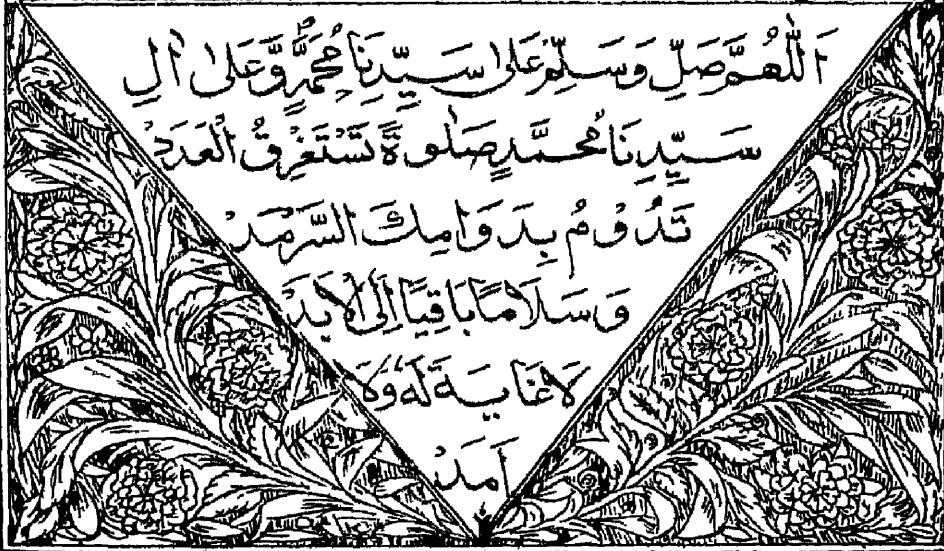 اَللّٰهُمَّ صَلِّ وَسَلِّمْ عَلٰى سَيِّدِنَا مُحَمَّدٍ وَّعَلٰى اٰلِ
سَيِّدِنَا مُحَمَّدٍ صَلٰوةً تَسْتَغْرِقُ الْعَدَدَ
تَدُوْمُ بِدَوَامِكَ السَّرْمَدَ
وَسَلَامًا بَاقِيًا اِلَى الْاَبَدَ
لَا غَايَةَ لَهُ وَلَا
اَمَدْ